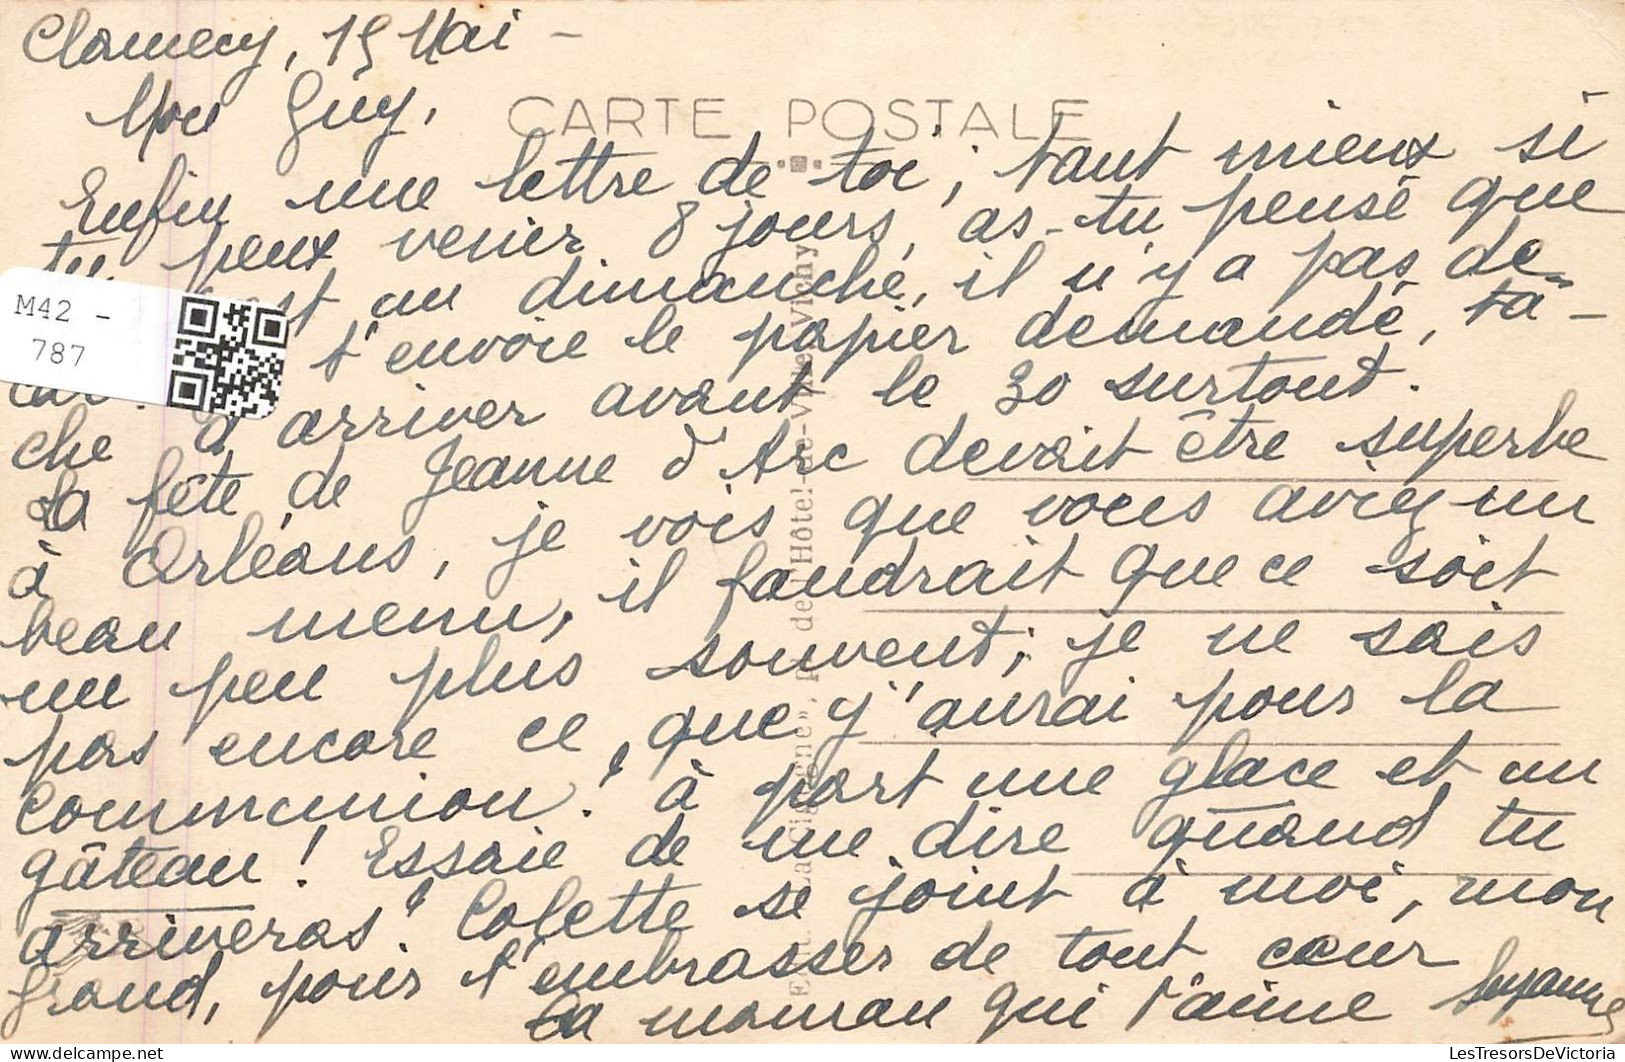 Clamecy, 15 Mai -
CARTE POSTALE
Mon Guy,
Enfin une lettre de toi, tant mieux si
tu peux venir 8 jours, as-tu pensé que
est un dimanche, il n'y a pas de
car. t'envoie le papier demandé, tâ-
che d'arriver avant le 30 surtout.
La fête de Jeanne d'Arc devait être superbe
à Orléans, je vois que vous aviez un
beau menu, il faudrait que ce soit
un peu plus souvent; je ne sais
pas encore ce que j'aurai pour la
communion! à part une glace et un
gâteau! Essaie de me dire quand tu
arriveras! Colette se joint à moi, mon
grand, pour t'embrasser de tout cœur
Ta maman qui t'aime Suzanne
M42 -
787
de l'Hôtel-de-Ville, Vichy
LesTresorsDeVictoria